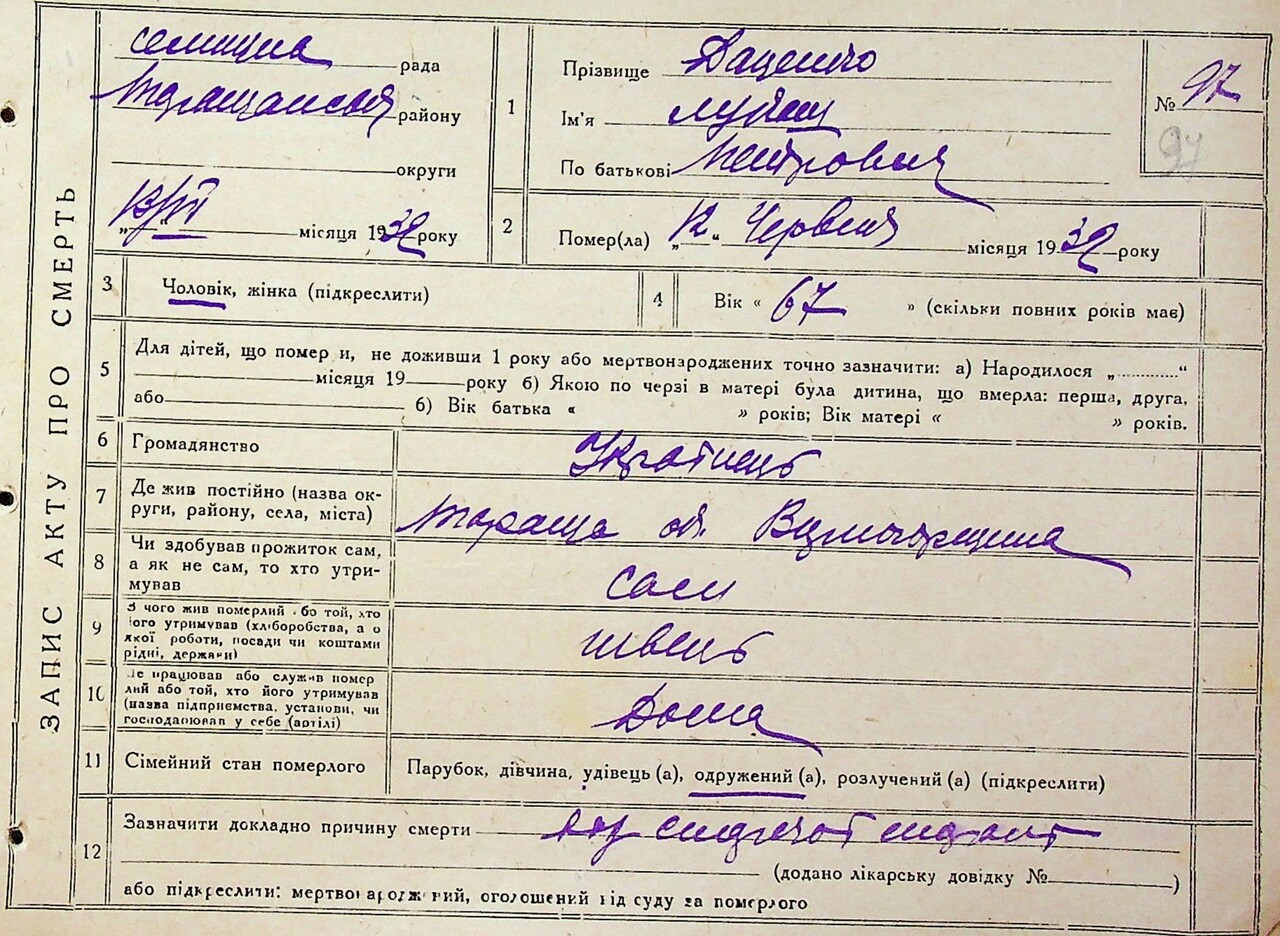 ЗАПИС АКТУ ПРО СМЕРТЬ
селищна рада
Таращанський району
округи
„13/VI“ місяця 1932 року
1
Прізвище Даценко
Ім'я
По батькові Петрович
№ 97
97
2
Помер(ла) „12“ Червня місяця 1932 року
3
Чоловік, жінка (підкреслити)
4
Вік « 67 » (скільки повних років має)
5
Для дітей, що помер и, не доживши 1 року або мертвонароджених точно зазначити: а) Народилося „............“
місяця 19 року б) Якою по черзі в матері була дитина, що вмерла: перша, друга,
або б) Вік батька « » років; Вік матері « » років.
6
Громадянство Українець
7
Де жив постійно (назва ок-
руги, району, села, міста)
Тараща
8
Чи здобував прожиток сам,
а як не сам, то хто утри-
мував
сам
9
З чого жив померлий або той, хто
його утримував (хліборобства, а о
якої роботи, посади чи коштами
рідні, держави)
швець
10
Де працював або служив помер
лий або той, хто його утримував
(назва підприємства, установи, чи
господарював у себе (артілі)
Дома
11
Сімейний стан померлого
Парубок, дівчина, удівець (а), одружений (а), розлучений (а) (підкреслити)
12
Зазначити докладно причину смерти
(додано лікарську довідку № )
або підкреслити: мертвонароджений, оголошений від суду за померлого